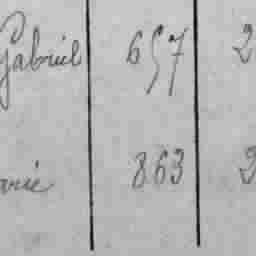 Gabriel 657 2
arie 863 2